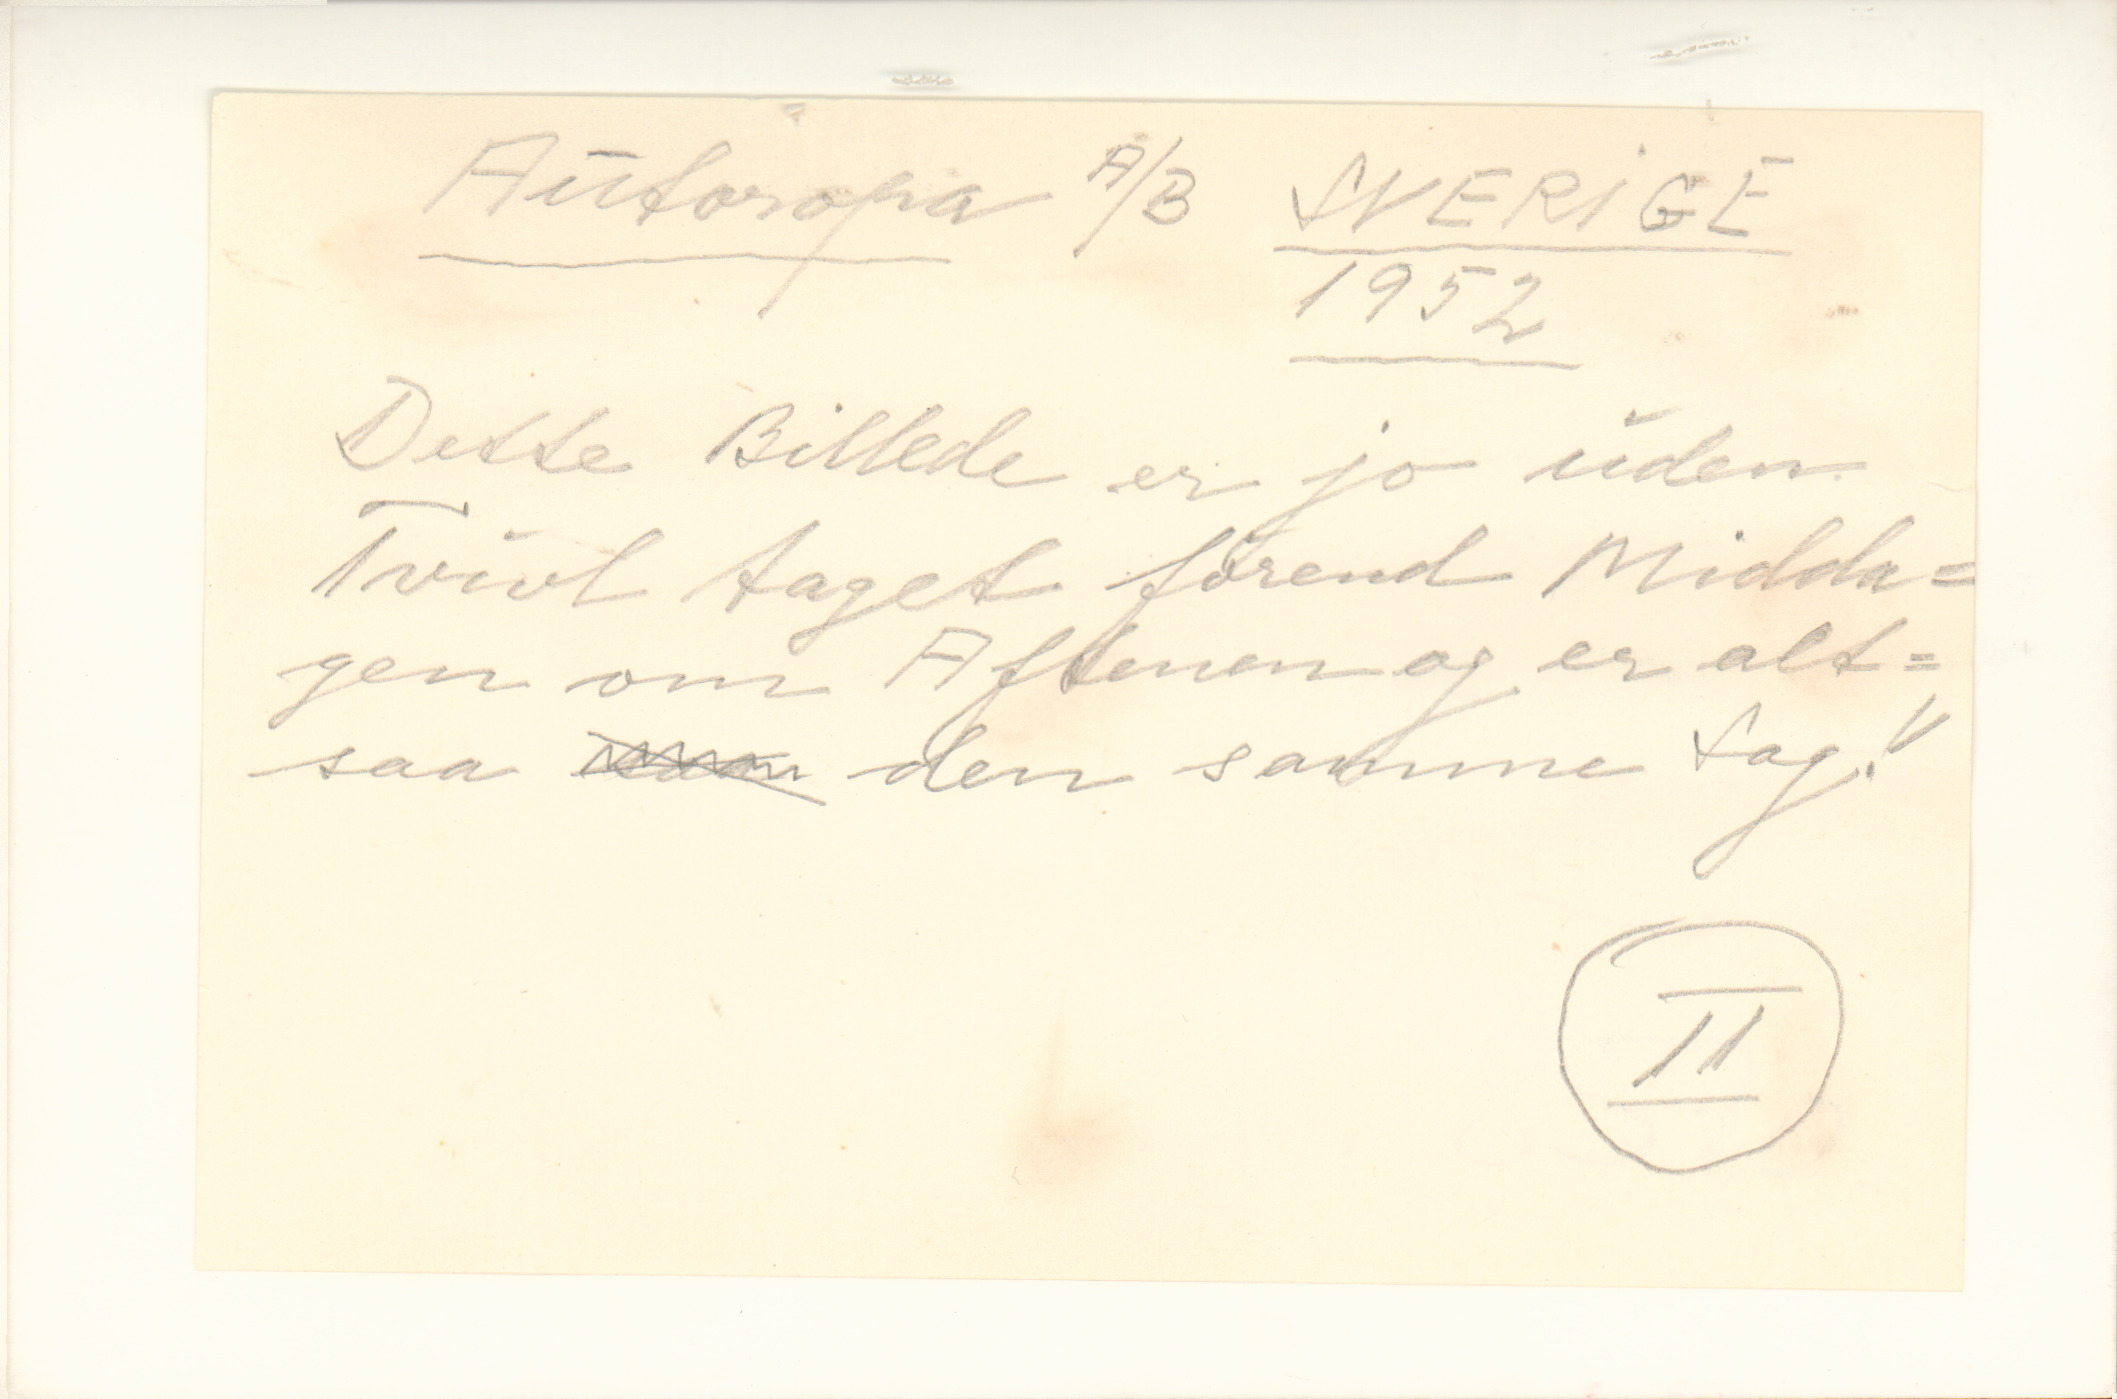 Autoropa A/B SVERIGE
1952
Dette Billede er jo uden
Tvivl taget förend Midda=
gen om Aftenen og er alt=
saa den samme Dag!"
II